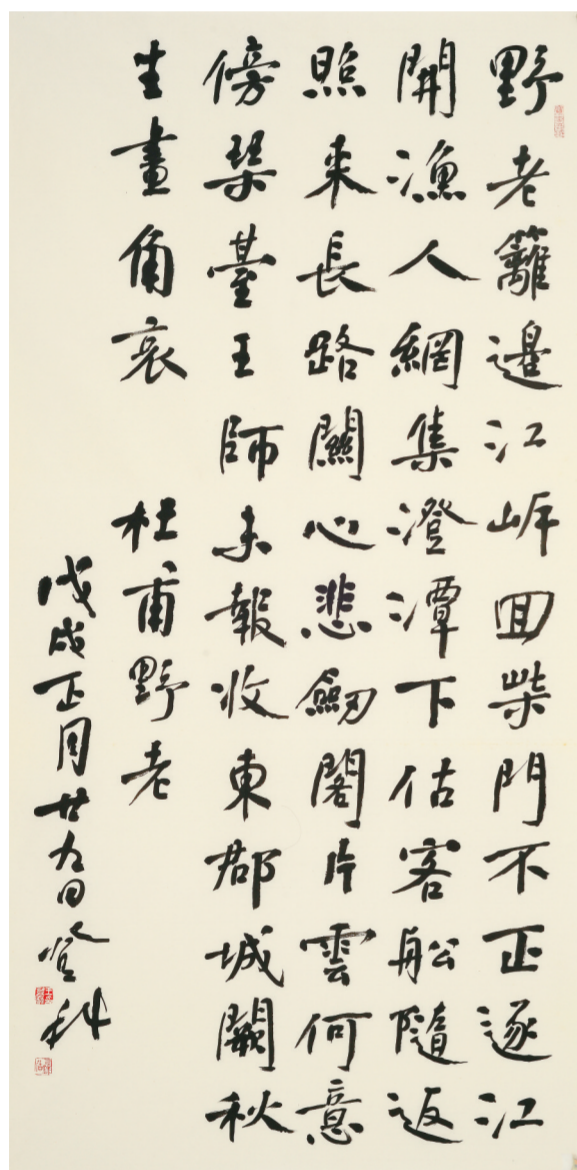 野老籬邊江岸回柴門不正逐江
開漁人網集澄潭下估客船隨返
照来長路關心悲劒閣片雲何意
傍琴臺王師未報收東郡城闕秋
生畫角哀　杜甫野老
戊戌正月廿九日登科